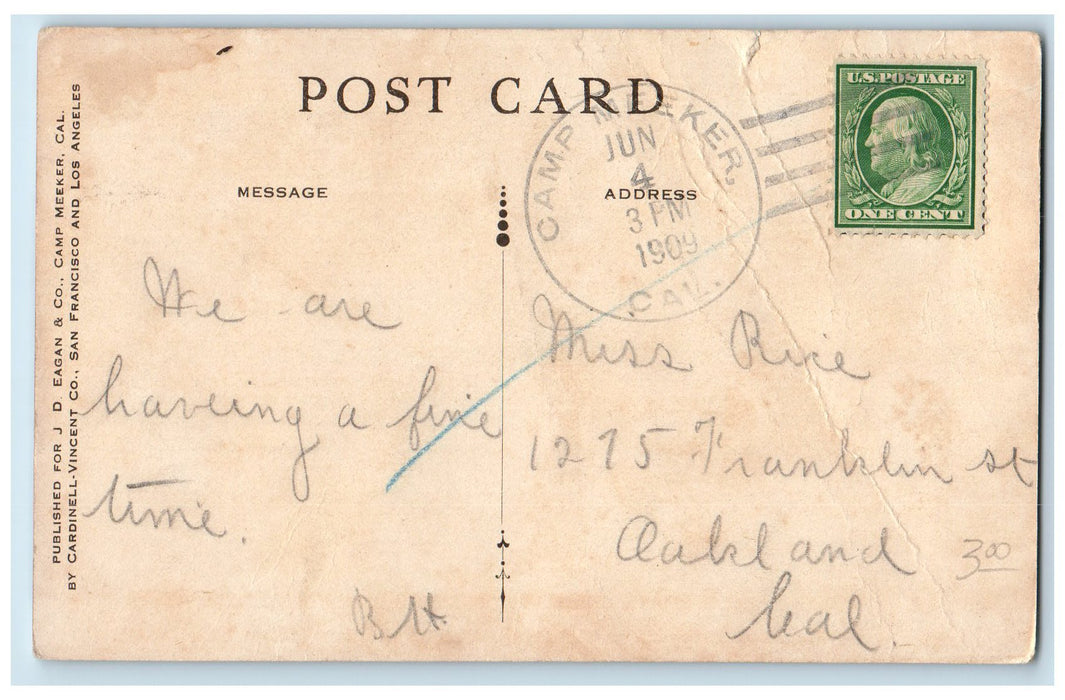 POST CARD
PUBLISHED FOR J D. EAGAN & CO., CAMP MEEKER, CAL.
BY CARDINELL-VINCENT CO., SAN FRANCISCO AND LOS ANGELES
MESSAGE
ADDRESS
CAMP MEEKER,
JUN
4
3 PM
1909
CAL.
U.S. POSTAGE
ONE CENT
We are
haveing a fine
time.
B H
Miss Rice
1275 Franklin st
Oakland
Cal.
3.00